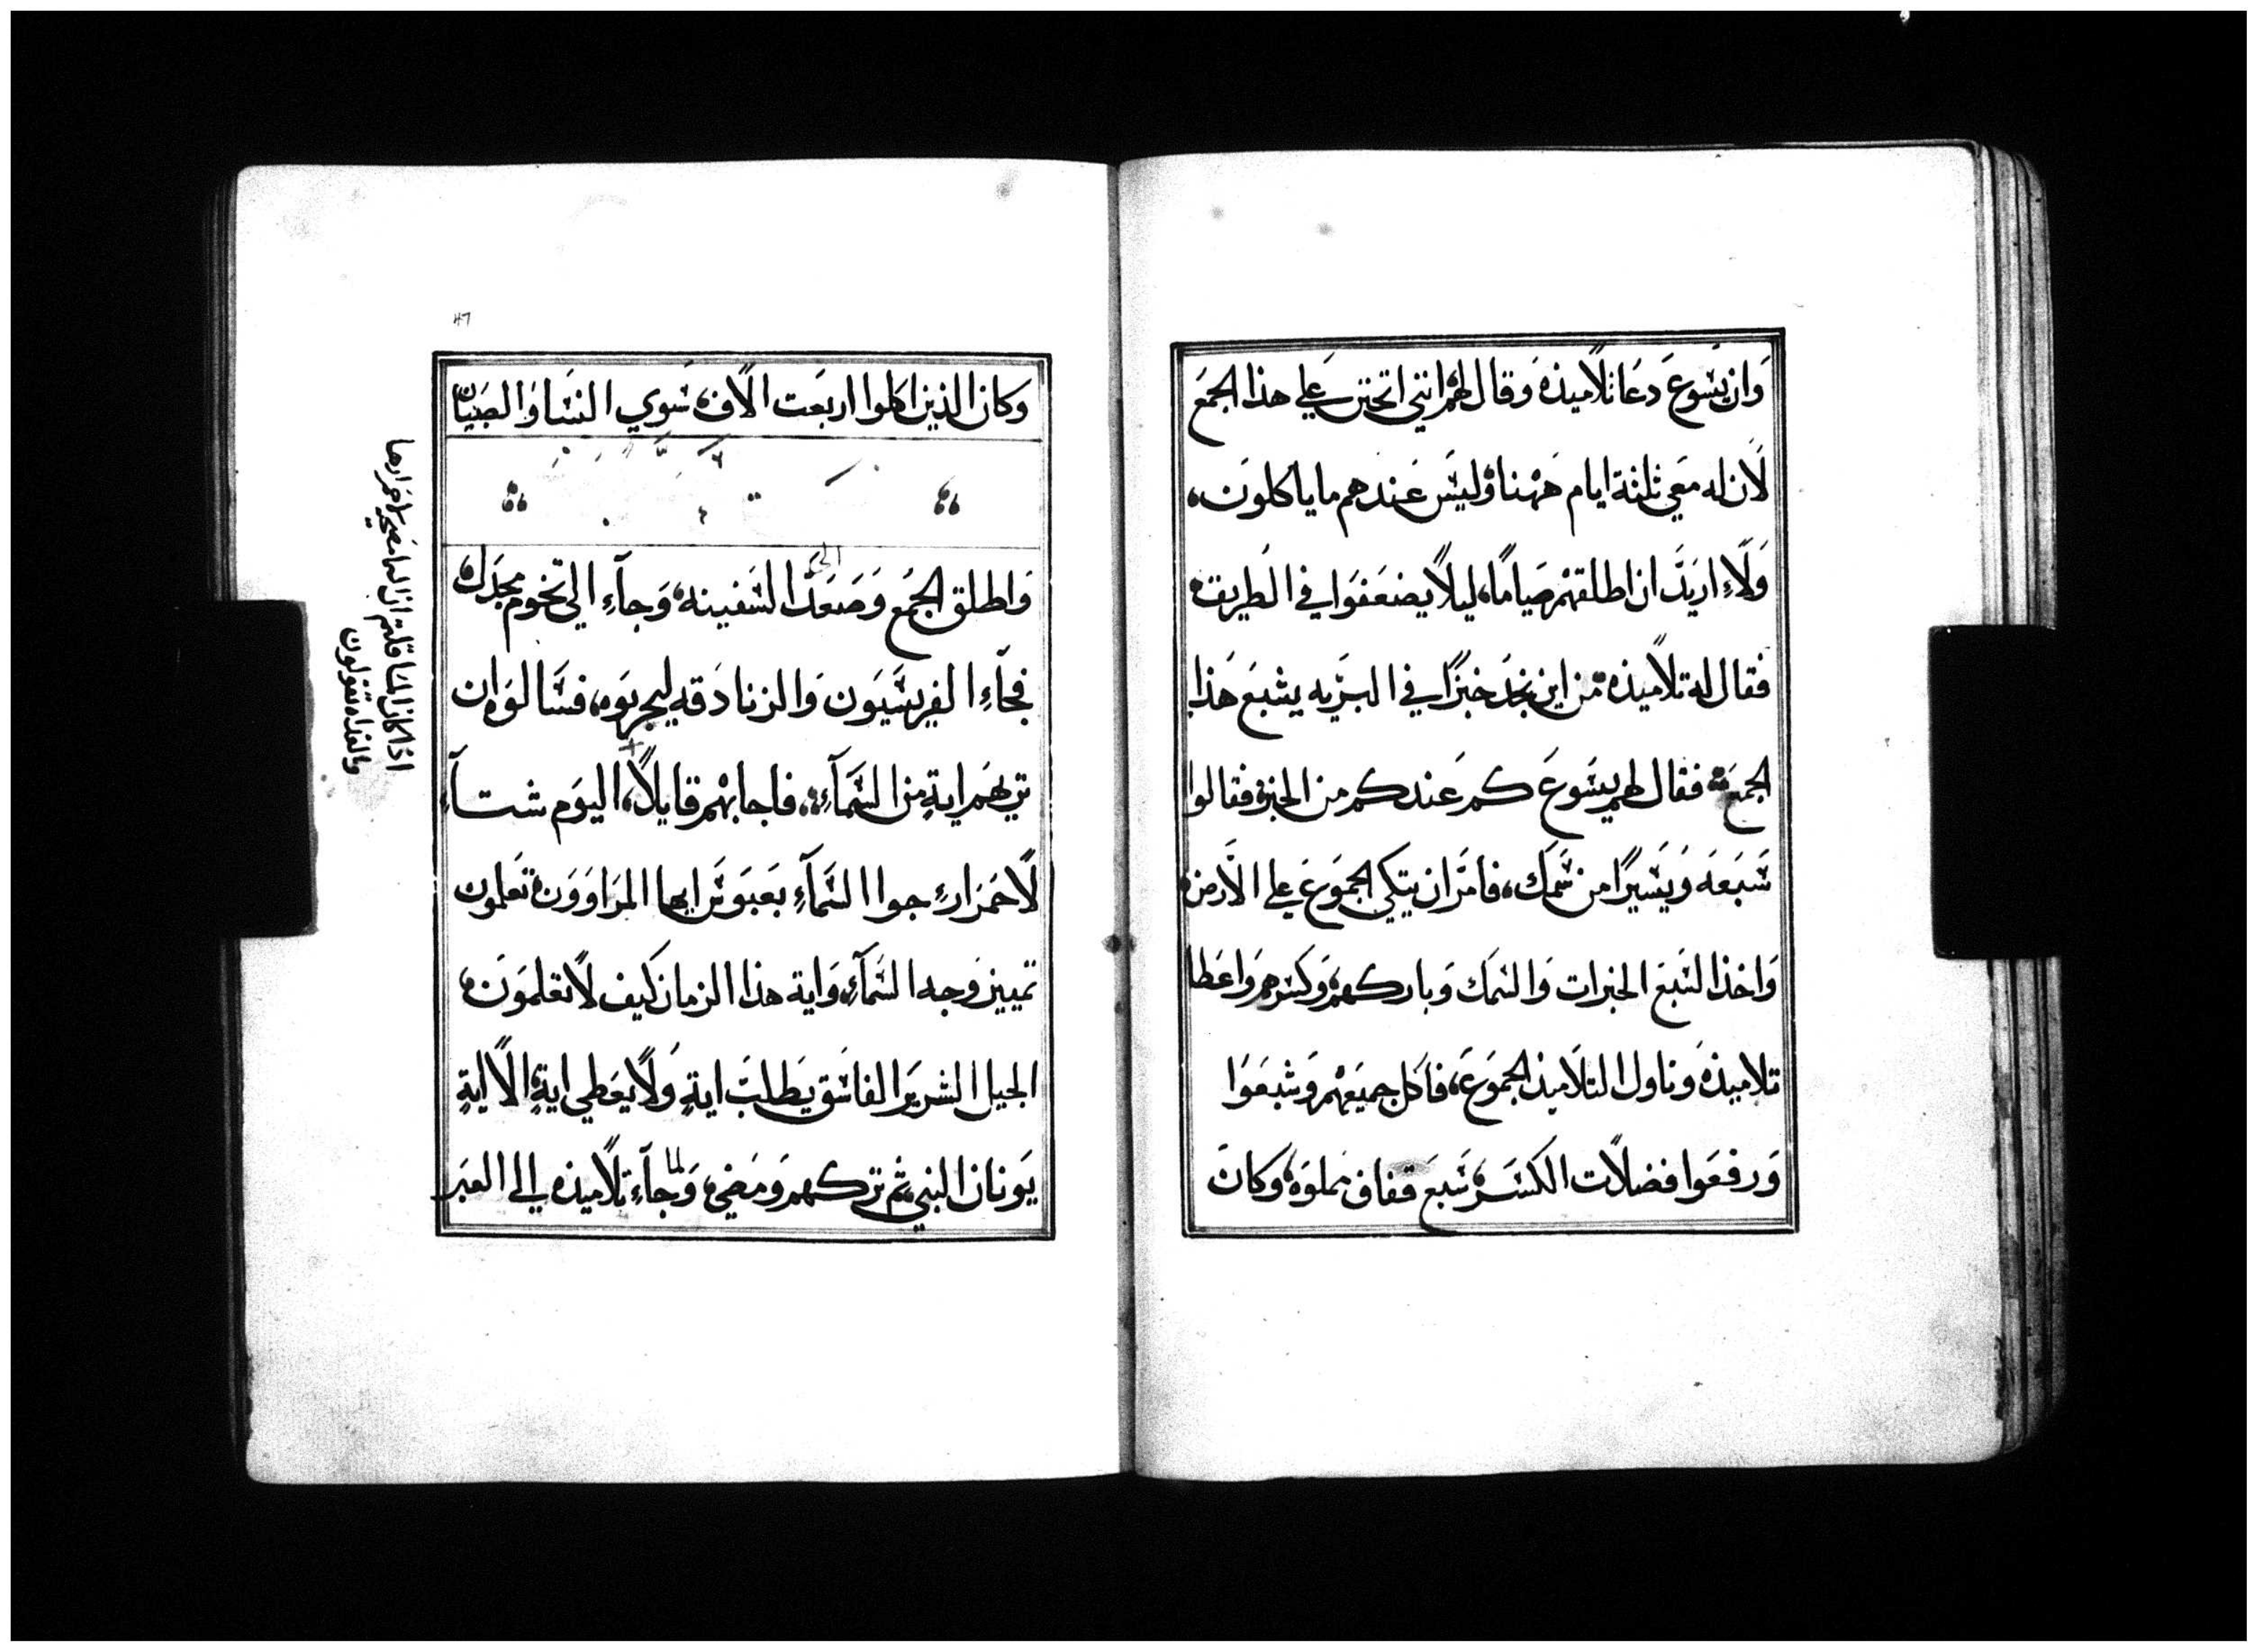 وان يسوع دعا تلاميذه وقال لهم انني اتحنن علي هذا الجمع
لان له معي ثلثة ايام ههنا وليس عندهم ما ياكلون،
ولا اريد ان اطلقهم صياما، ليلا يضعفوا في الطريق
فقال له تلاميذه من اين نجد خبزا في البريه يشبع هذا
الجمع فقال لهم يسوع كم عندكم من الخبز فقالوا
سبعه ويسيرا من سمك، فامر ان يتكي الجموع علي الارض
واخذ السبع الخبزات والسمك وباركهم وكسرهم واعطا
تلاميذه وناول التلاميذ الجموع، فاكل جميعهم وشبعوا
ورفعوا فضلات الكسره سبع قفاف مملوه وكان
47
وكان الذين اكلوا اربعت الاف سوي النسا والصبيان
واطلق الجمع وصعد الي السفينه وجآء الي تخوم مجدل
فجآء الفريسيون والزنادقه ليجربوه، فسالوه ان
تريهم اية من السمآء، فاجابهم قايلا، اليوم شتآء
لاحمرار جوا السمآء بعبوس ايها المراوون تعلمون
تمييز وجه السمآء، واية هذا الزمان كيف لا تعلمون
الجيل الشرير الفاسق يطلب اية ولا يعطي اية الا اية
يونان النبي ثم تركهم ومضي، ولما جآء تلاميذه الي العبر
اذا كان المسا قلتم ان السما مصحيه لاحمرارها
وبالغداه تقولون